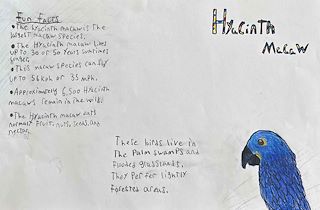 Fun Facts
•The hyacinth macaw is the
largest macaw species.
•The Hyacinth macaw lives
up to 30 or 50 years sometimes
longer.
•This macaw species can fly
up to 56 kph or 35 mph.
•Approximately 6,500 Hyacinth
macaws remain in the wild.
•The Hyacinth macaw eats
normaly fruit, nuts, seeds, and
nectar.
Hyacinth
Macaw
These birds live in
the palm swamps and
flooded grasslands.
They perfer lightly
forested areas.